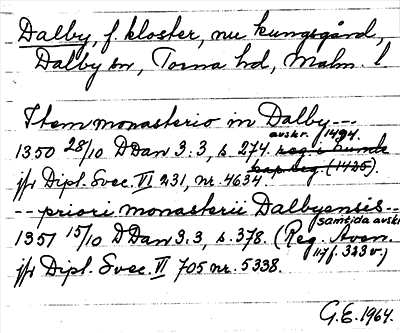 Dalby, f. kloster, nu kungsgård,
Dalby sn, Torna hd, Malm. l.
Item monasterio in Dalby---
avskr. 1494.
1350 28/10 DDan 3:3, s 274. reg i hunds
kap. reg. (1425).
jfr Dipl. Svec. VI 231, nr. 4634.
--priori monasterii Dalbyensis--
samtida avskr.
1351 15/10 DDan 3.3, s. 378. (Reg. Aven.
117 f. 323 v.)
jfr Dipl. Svec. VI 705 nr. 5338.
G.E. 1964.